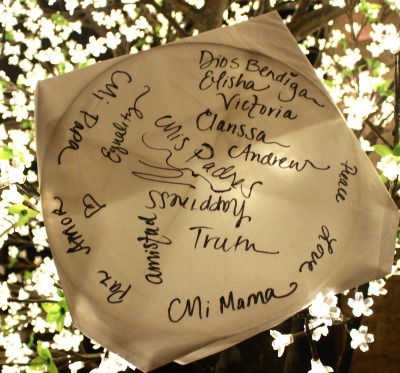 Dios Bendigan
Elisha
Victoria
Clarissa
Andrew
Mi Papa
Equality
Mis Padres
Happiness
Truth
amistad
Paz Amor
Peace
Love
Mi Mama